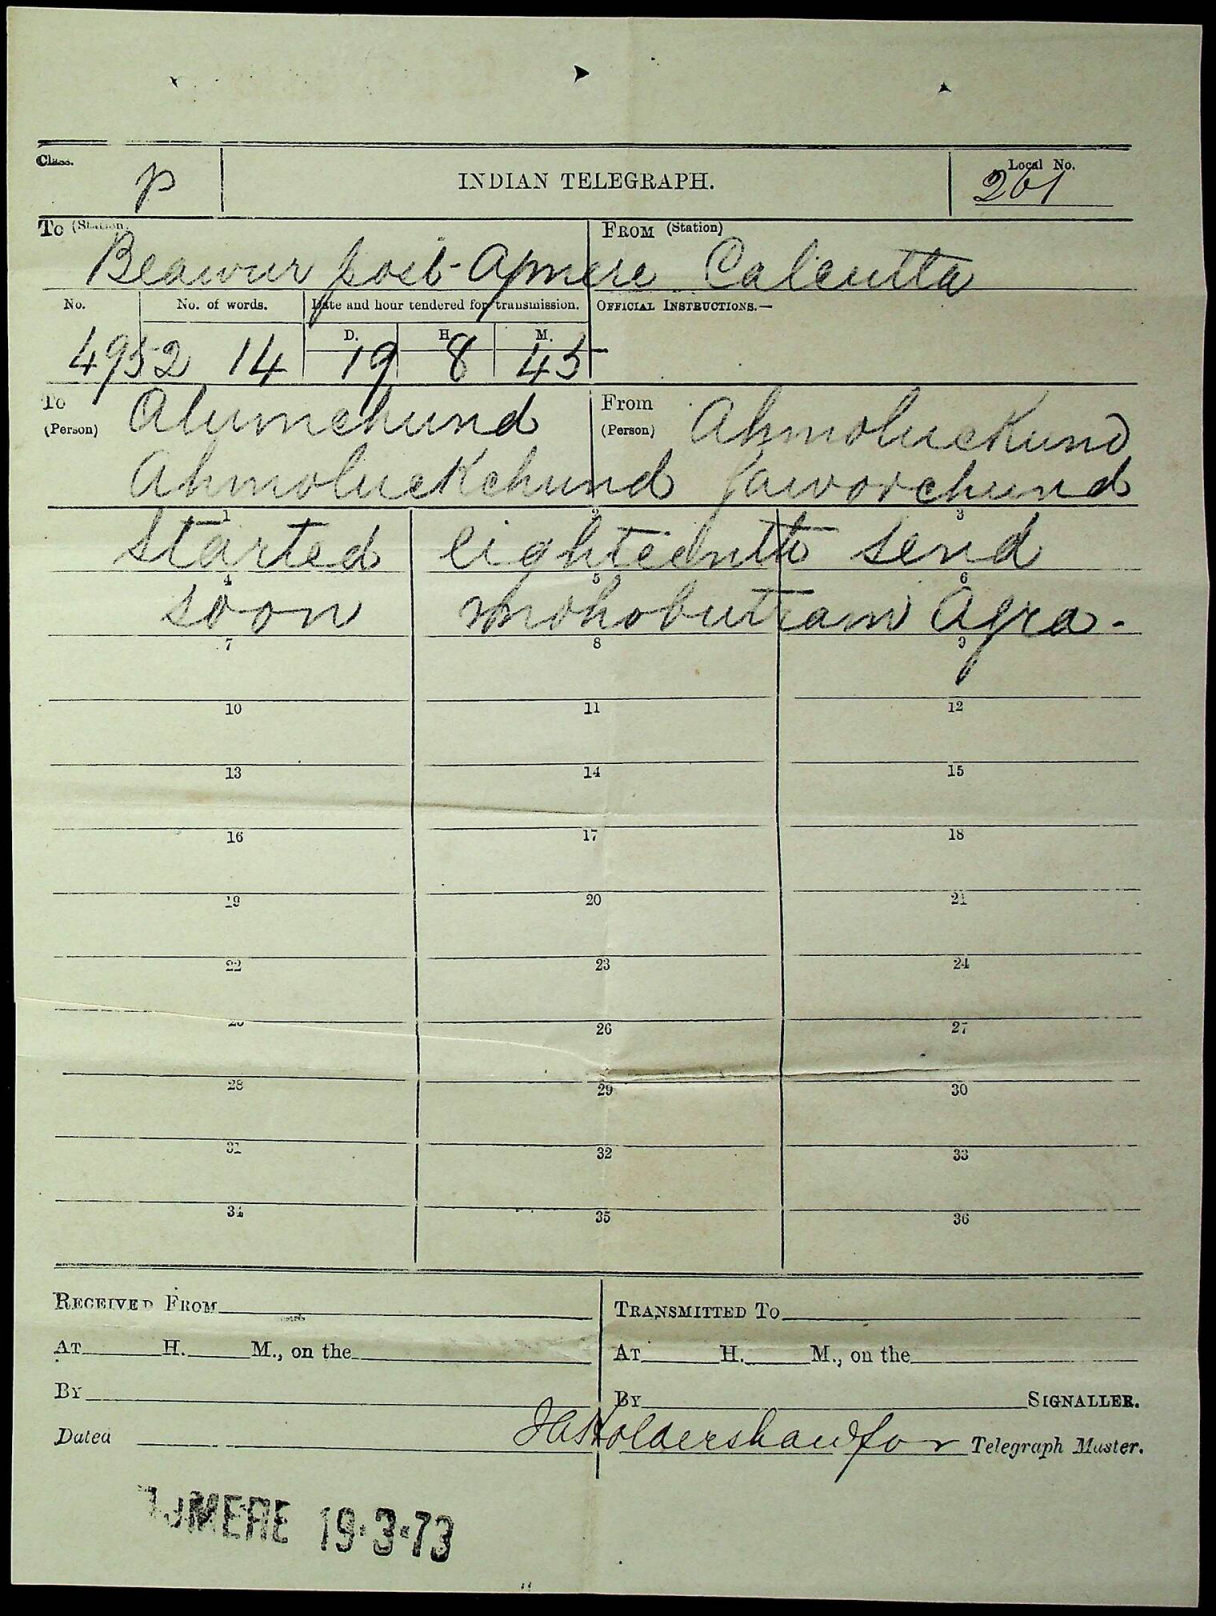 Class. P INDIAN TELEGRAPH. Local No. 261
To (Station) FROM (Station)
Beawur post Ajmere Calcutta
No. No. of words. Date and hour tendered for transmission. OFFICIAL INSTRUCTIONS.—
D. H. M.
4952 14 19 8 45
To (Person) Alumchund From (Person) Ahmoluckund
Ahmoluckchund Jaworchund
1 2 3
Started eighteenth send
4 5 6
soon mohobutram Agra.
7 8 9
10 11 12
13 14 15
16 17 18
19 20 21
22 23 24
25 26 27
28 29 30
31 32 33
34 35 36
RECEIVED FROM TRANSMITTED TO
AT H. M., on the AT H. M., on the
BY BY SIGNALLER.
Dated Holdershaw for Telegraph Master.
AJMERE 19·3·73